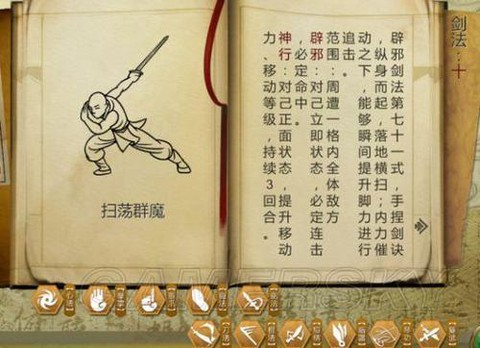 剑法:十
辟邪剑法第七十一式,手捏剑诀
,纵身而起,落地横扫;内力催
动之下,能够瞬间提升脚力进行
追击。
范围:周遭一格内全体敌方
辟邪:对己立即状态,必定连击
,必定命中。
神行:对己正面状态,提升移动
力、移动等级,持续3回合。
扫荡群魔
GAMERSKY